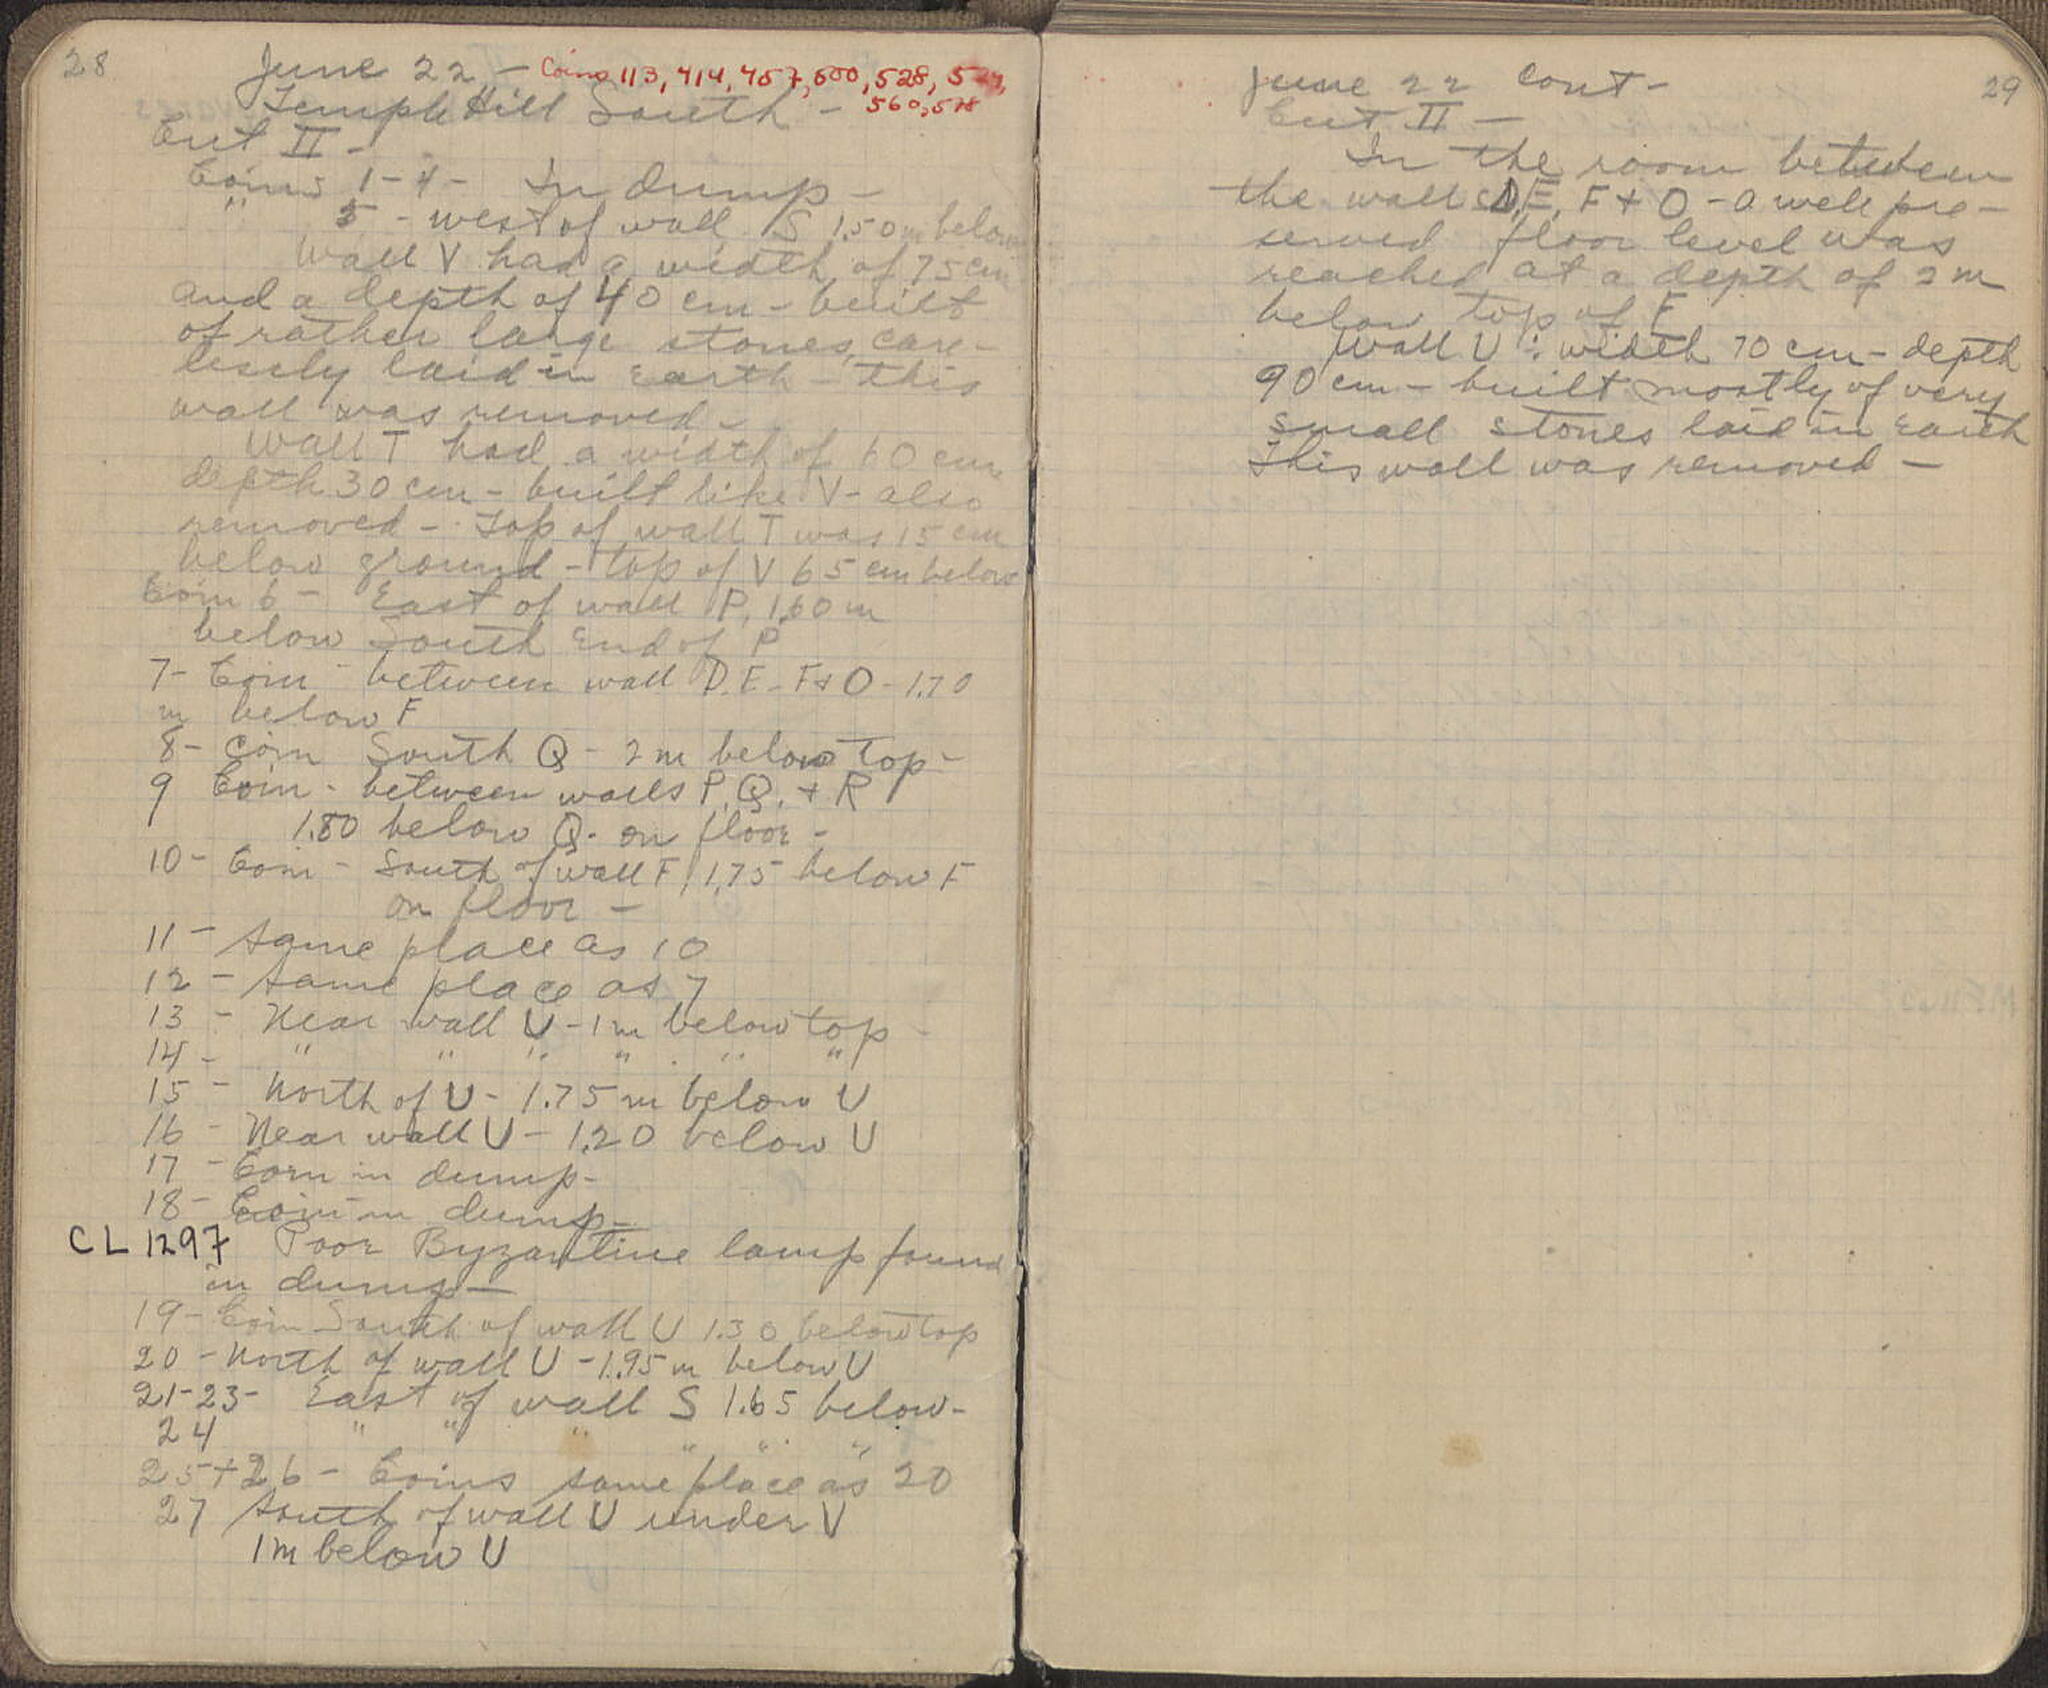 28
June 22 - Coins 113, 414, 457, 500, 528,
Temple Hill South - 560, 578
Cut II -
Coins 1-4 - In dump -
" 5 - west of wall S 1.50 m below
Wall V had a width of 75 cm
and a depth of 40 cm - built
of rather large stones, care-
lessly laid in earth - this
wall was removed -
Wall T had a width of 60 cm
depth 30 cm - built like V - also
removed - Top of wall T was 15 cm
below ground - top of V 65 cm below
Coin 6 - East of wall P, 1.60 m
below South End of P
7 - Coin - between wall D. E - F + O - 1.70
m below F
8 - Coin South Q - 2 m below top -
9 Coin - between walls P, Q, + R
1.80 below Q. on floor -
10 - Coin - South of wall F, 1.75 below F
on floor -
11 - Same place as 10
12 - Same place as 7
13 - Near wall U - 1 m below top -
14 - " " " " " "
15 - North of U - 1.75 m below U
16 - Near wall U - 1.20 below U
17 - Coin in dump -
18 - Coin in dump -
CL 1297 Poor Byzantine lamp found
in dump -
19 - Coin South of wall U 1.30 below top
20 - North of wall U - 1.95 m below U
21-23 - East of wall S 1.65 below -
24 " " " " " "
25 + 26 - Coins same place as 20
27 South of wall U under V
1 m below U
29
June 22 cont -
Cut II -
In the room between
the walls D, E, F + O - a well pre-
served floor level was
reached at a depth of 2 m
below top of F
Wall U : width 70 cm - depth
90 cm - built mostly of very
small stones laid in earth
This wall was removed -